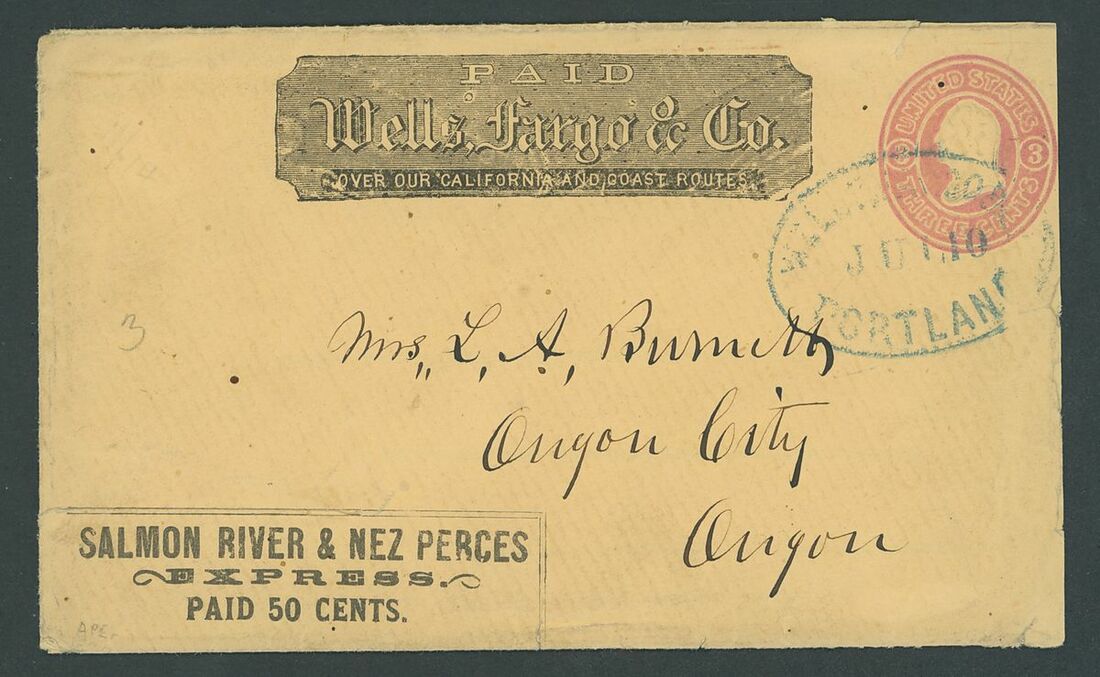 PAID
Wells, Fargo & Co.
OVER OUR CALIFORNIA AND COAST ROUTES.
UNITED STATES
3 3
THREE CENTS
JUL 10
PORTLAND
Mrs, L. A, Burnett
Oregon City
Oregon
3
SALMON RIVER & NEZ PERCES
EXPRESS.
PAID 50 CENTS.
APE.